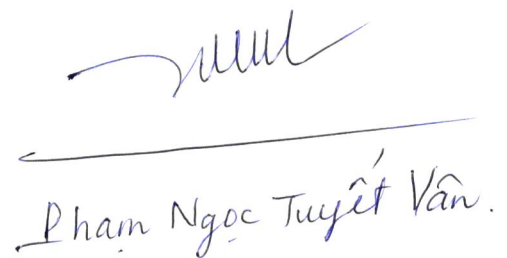 Phạm Ngọc Tuyết Vân.